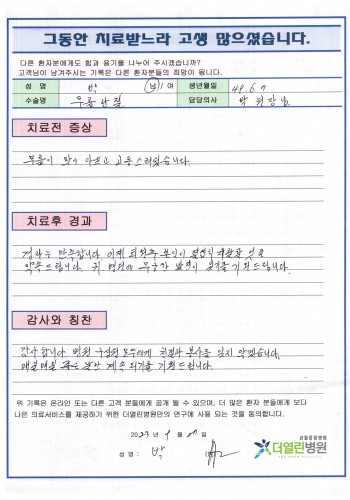 그동안 치료받느라 고생 많으셨습니다.
다른 환자분에게도 힘과 용기를 나누어 주시겠습니까?
고객님이 남겨주시는 기록은 다른 환자분들의 희망이 됩니다.
성 명 박 남 / 여 생년월일 49. 6. 7
수술명 무릎관절 담당의사 박 원장님
치료전 증상
무릎이 많이 아프고 고통스러웠습니다.
치료후 경과
만족합니다. 이제
약속드립니다. 귀 병원에 무궁한 발전이 있기를 기원드립니다.
감사와 칭찬
감사합니다 병원 구성원 모두에게 친절과 봉사를 잊지 않겠습니다.
매일매일 계속되기를 기원드립니다.
위 기록은 온라인 또는 다른 고객 분들에게 공개 될 수 있으며, 더 많은 환자 분들에게 보다
나은 의료서비스를 제공하기 위한 더열린병원만의 연구에 사용 되는 것을 동의합니다.
2023 년 월 일
성 명 : 박
관절중점병원
더열린병원